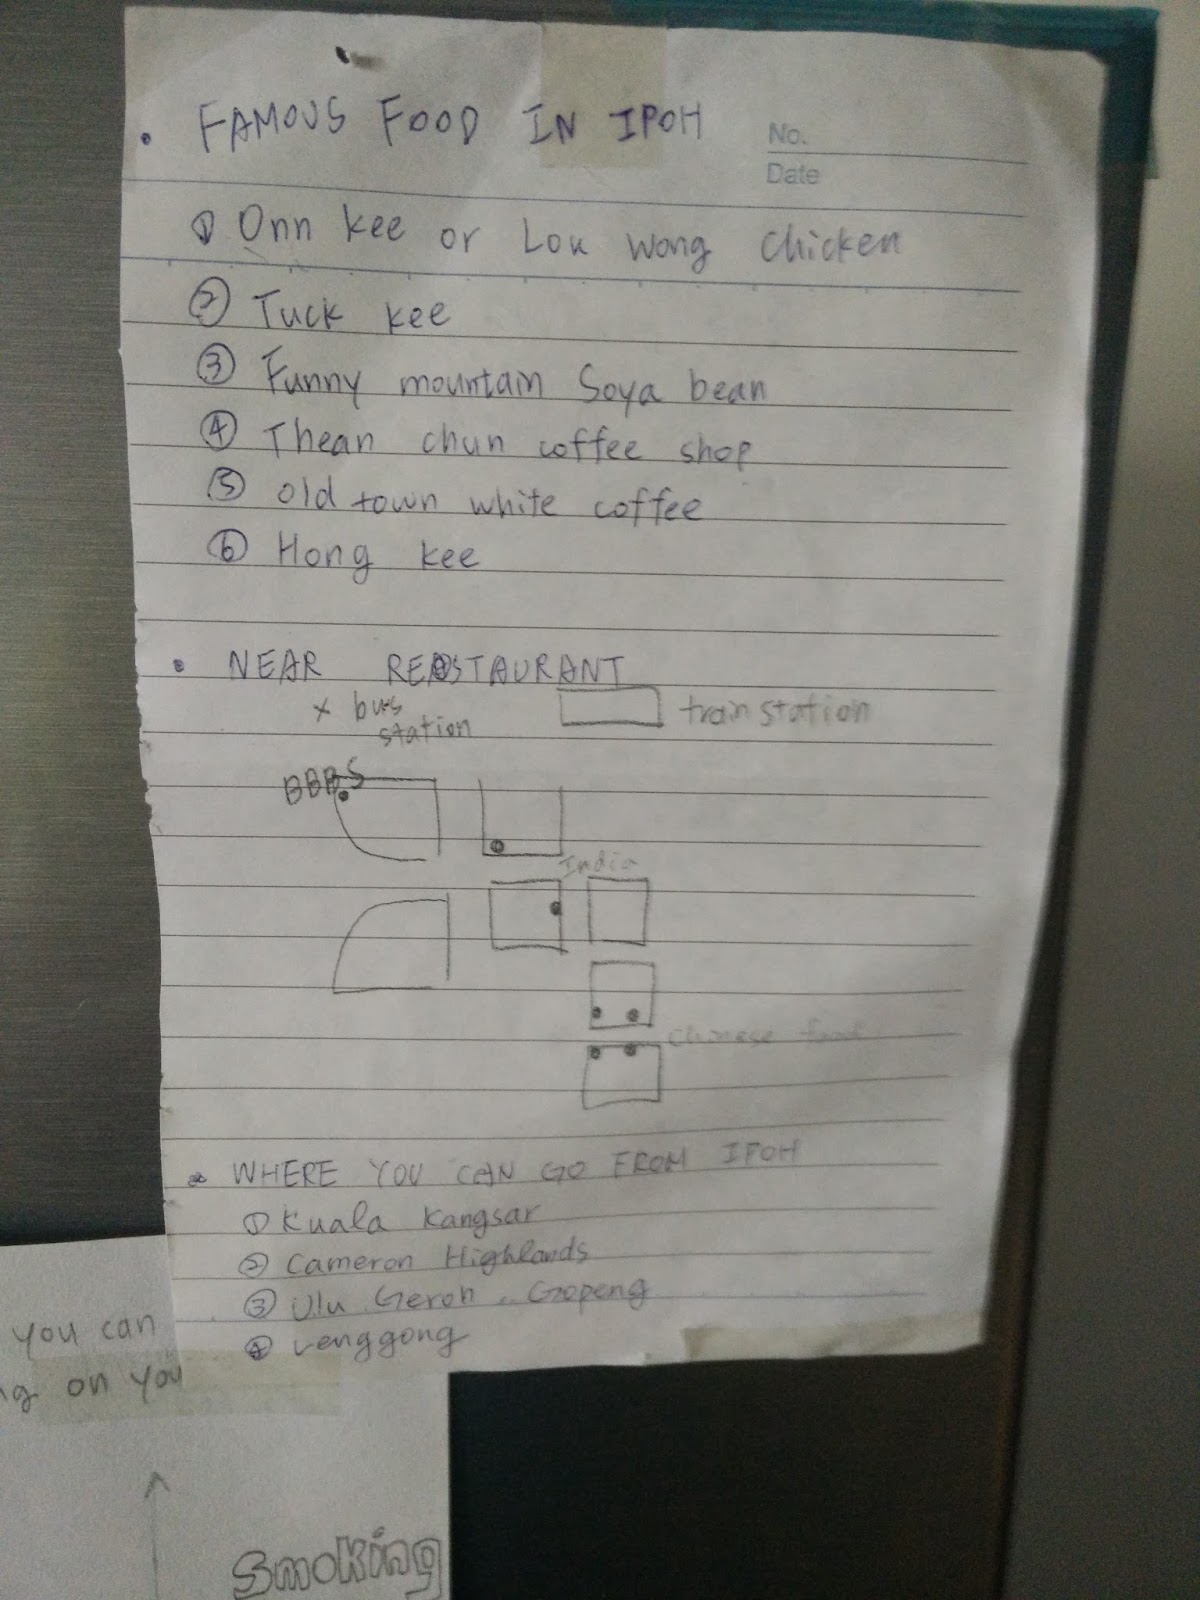 • FAMOUS FOOD IN IPOH
No.
Date
① Onn Kee or Lou Wong Chicken
② Tuck kee
③ Funny mountain Soya bean
④ Thean chun coffee shop
⑤ old town white coffee
⑥ Hong kee
• NEAR RESTAURANT
x bus station
train station
BBBS
India
Chinese food
• WHERE YOU CAN GO FROM IPOH
① Kuala Kangsar
② Cameron Highlands
③ Ulu Geroh .. Gopeng
④ Lenggong
you can
on you
Smoking